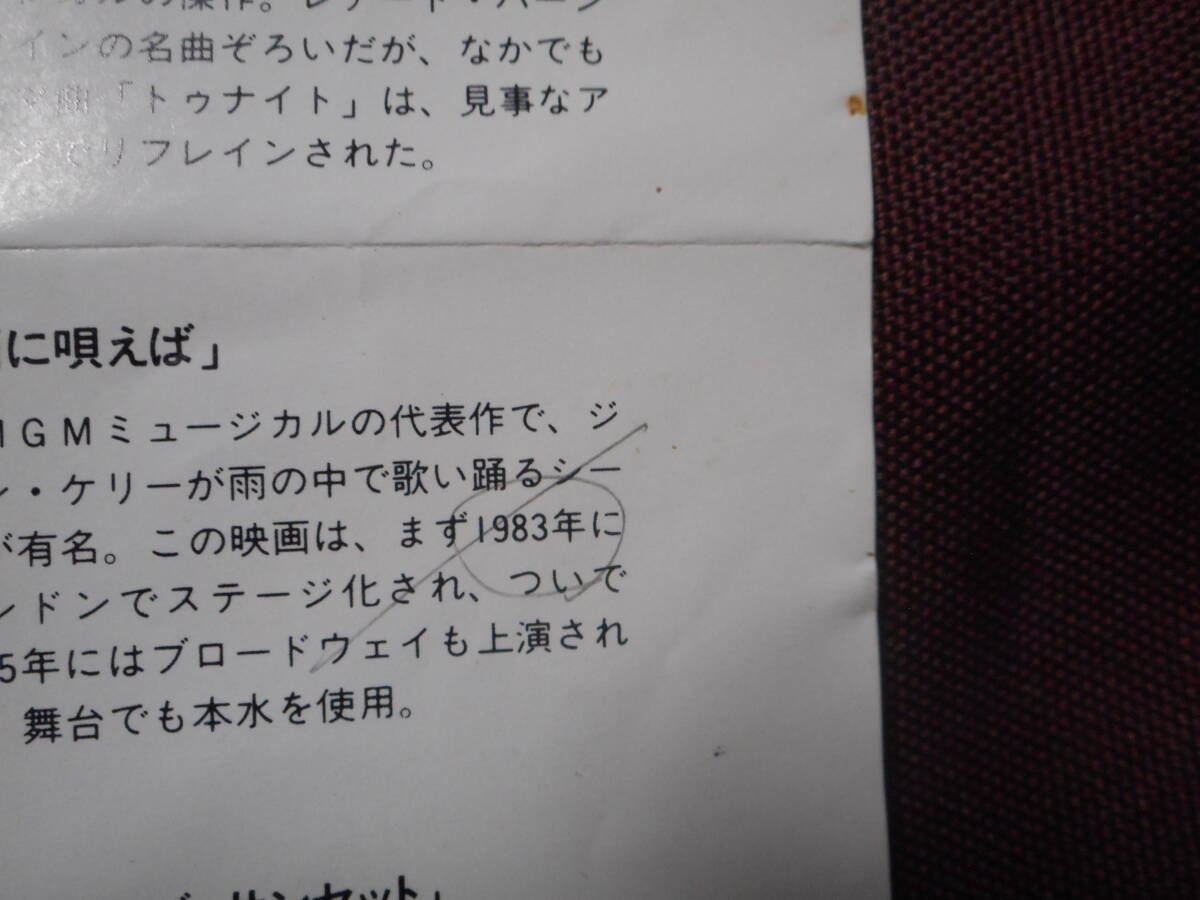 の傑作。レナード・バーン
インの名曲ぞろいだが、なかでも
曲「トゥナイト」は、見事なア
でリフレインされた。
に唄えば」
ＧＭミュージカルの代表作で、ジ
ン・ケリーが雨の中で歌い踊るシー
が有名。この映画は、まず1983年に
ンドンでステージ化され、ついで
5年にはブロードウェイも上演され
舞台でも本水を使用。
サンセット」